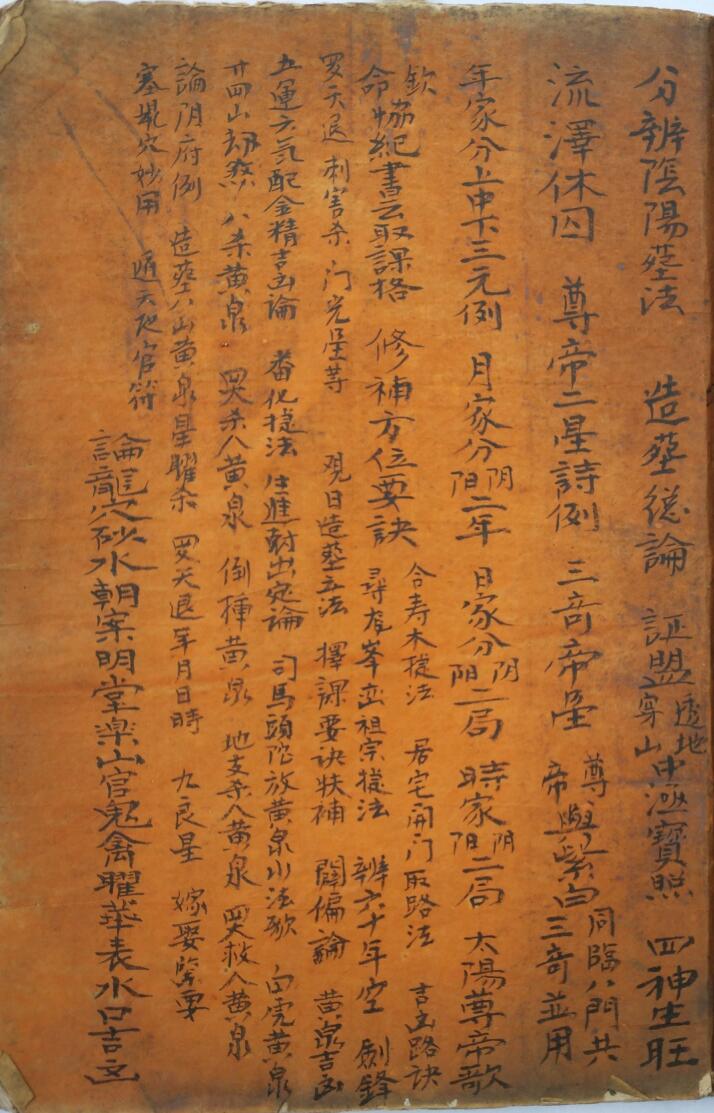 分辨陰陽塋法 造塋総論 証盟透地穿山中涵寶照 四神生旺
流澤休囚 尊帝二星詩例 三奇帝星 尊帝與紫白三奇並用 同臨八門共
年家分上中下三元例 月家分阴阳二年 日家分阴阳二局 時家阴阳二局 太陽尊帝歌
欽命協紀書云取課格 修補方位要訣 合寿木捷法 居宅開门取路法 吉凶路訣
尋龙峯峦祖宗捷法 辨六十年空 劍鋒
罗天退 刺害杀 门光星等 观日造塋立法 擇課要诀扶補 闢偏論 黄泉吉凶
五運六氣配金精吉凶論 番化捷法 生進尅出定論 司馬頭陀放黄泉水法歌 白虎黄泉
廿四山刼煞 八杀黄泉 四杀八黄泉 倒挿黄泉 地支杀八黄泉 四救八黄泉
論阴府例 造塋八山黄泉星曜杀 四天退年月日時 九良星 嫁娶緊要
塞堤穴妙用 通天地官符
論龍穴砂水朝案明堂楽山官鬼禽曜華表水口吉凶